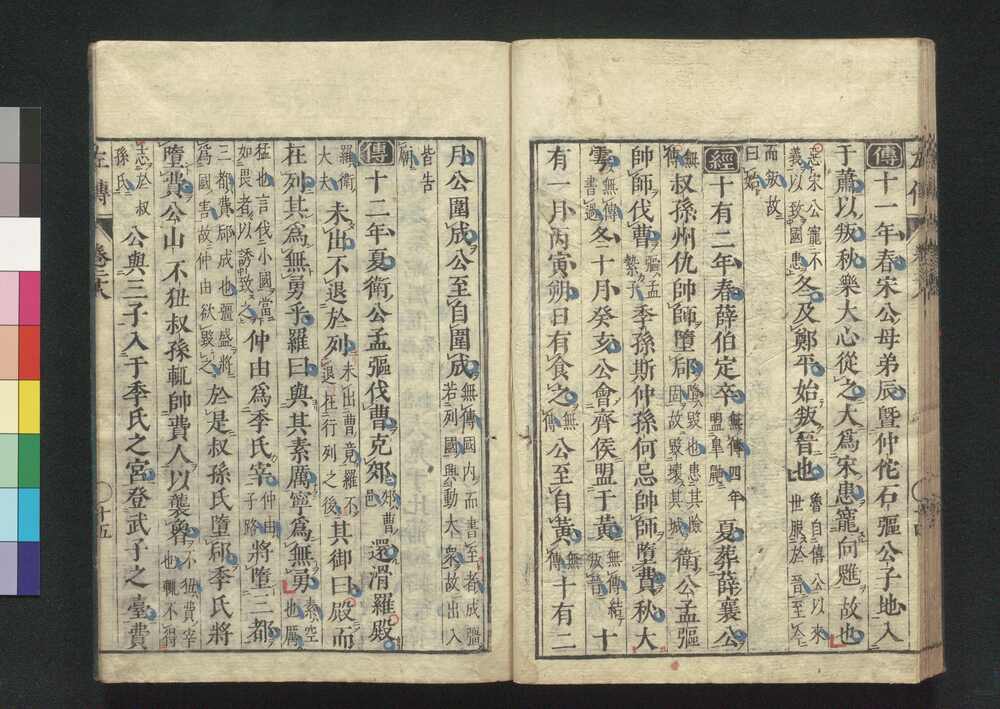 傳十一年春宋公母弟辰曁仲佗石彄公子地入
于蕭以叛秋樂大心從之大爲宋患寵向魋故也
惡宋公寵不義以致國患冬及鄭平始叛晉也魯自僖公以來世服於晉至今
而叛故曰始
經十有二年春薛伯定卒無傳四年盟皐鼬夏葬薛襄公
無傳叔孫州仇帥師墮郈墮毀也患其險固故毀壞其城衛公孟彄
帥師伐曹彄孟縶子季孫斯仲孫何忌帥師墮費秋大
雩無傳書過冬十月癸亥公會齊侯盟于黃無傳結叛晉十
有一月丙寅朔日有食之無傳公至自黃無傳十有二
月公圍成公至自圍成無傳國内而書至者成彊若列國興動大衆故出入
皆告廟
傳十二年夏衛公孟彄伐曹克郊郊曹邑還滑羅殿
羅衛大夫未出不退於列未出曹竟羅不退在行列之後其御曰殿而
在列其爲無勇乎羅曰與其素厲寧爲無勇素空也厲
猛也言伐小國當如畏者以誘致之仲由爲季氏宰仲由子路將墮三都
三都費郈成也彊盛將爲國害故仲由欲毀之於是叔孫氏墮郈季氏將
墮費公山不狃叔孫輒帥費人以襲魯不狃費宰也輒不得
志於叔孫氏公與三子入于季氏之宮登武子之臺費
左傳
卷二十八
十五